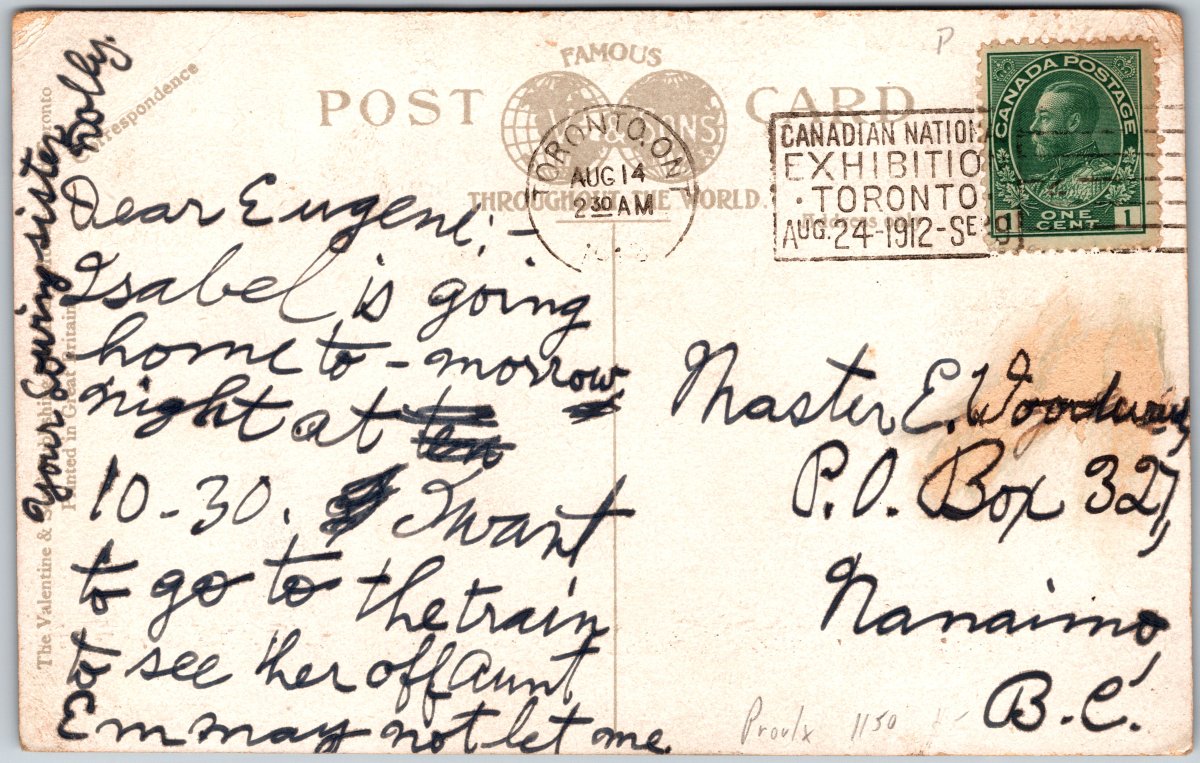 FAMOUS
POST CARD
THROUGHOUT THE WORLD.
Correspondence
TORONTO, ONT
AUG 14
2 30 AM
CANADIAN NATIONA
EXHIBITIO
· TORONTO
AUG. 24-1912-SE 9
CANADA POSTAGE
1 ONE CENT 1
P
Dear Eugene; -
Isabel is going
home to-morrow
night at ten
10-30. I want
to go to the train
to see her off Aunt
Em may not let me
Your loving sister
Master E.
P.O. Box 327,
Nanaimo,
B.C.
The Valentine &
Printed in Great Britain
Proulx 1150